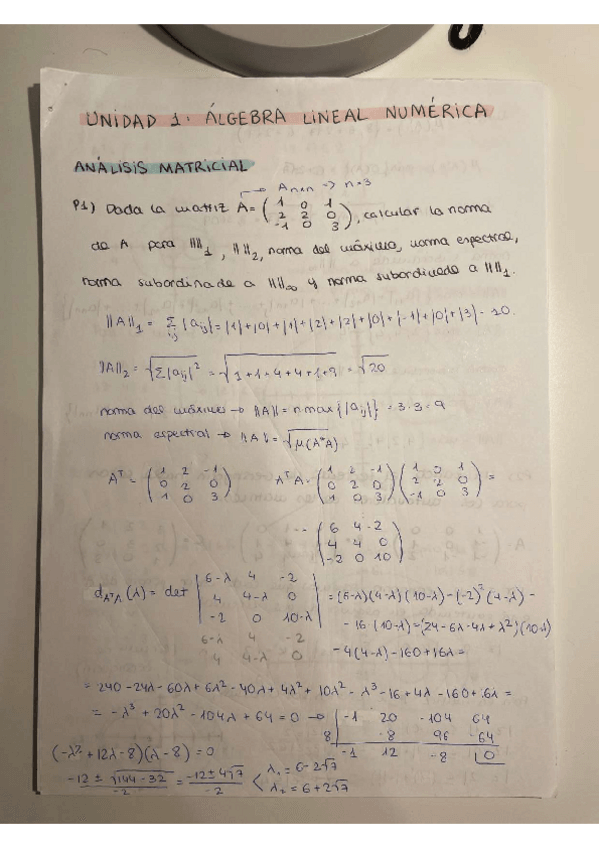 UNIDAD 1: ÁLGEBRA LINEAL NUMÉRICA
ANÁLISIS MATRICIAL
→ Anxn => n=3
P1) Dada la matriz A= ( 1 0 1
2 2 0
-1 0 3 ), calcular la norma
de A para || ||₁, || ||₂, norma del máximo, norma espectral,
norma subordinada a || ||∞ y norma subordinada a || ||₁.
||A||₁ = Σij |aij| = |1|+|0|+|1|+|2|+|2|+|0|+|-1|+|0|+|3| = 10.
||A||₂ = √Σ|aij|² = √1+1+4+4+1+9 = √20
norma del máximo → ||A|| = n max{|aij|} = 3·3=9
norma espectral → ||A|| = √μ(A*A)
Aᵀ = ( 1 2 -1
0 2 0
1 0 3 ) AᵀA = ( 1 2 -1
0 2 0
1 0 3 ) ( 1 0 1
2 2 0
-1 0 3 ) =
= ( 6 4 -2
4 4 0
-2 0 10 )
dAᵀA (λ) = det | 6-λ 4 -2
4 4-λ 0
-2 0 10-λ | = (6-λ)(4-λ)(10-λ)-(-2)²(4-λ)-
6-λ 4 -2
4 4-λ 0
-16·(10-λ)=(24-6λ-4λ+λ²)(10-λ)
-4(4-λ)-160+16λ=
= 240-24λ-60λ+6λ²-40λ+4λ²+10λ²-λ³-16+4λ-160+16λ =
= -λ³+20λ²-104λ+64=0 → | -1 20 -104 64
8| -8 96 -64
-1 12 -8 |0
(-λ²+12λ-8)(λ-8)=0
-12±√144-32 / -2 = -12±4√7 / -2 < λ₁=6-2√7
λ₂=6+2√7